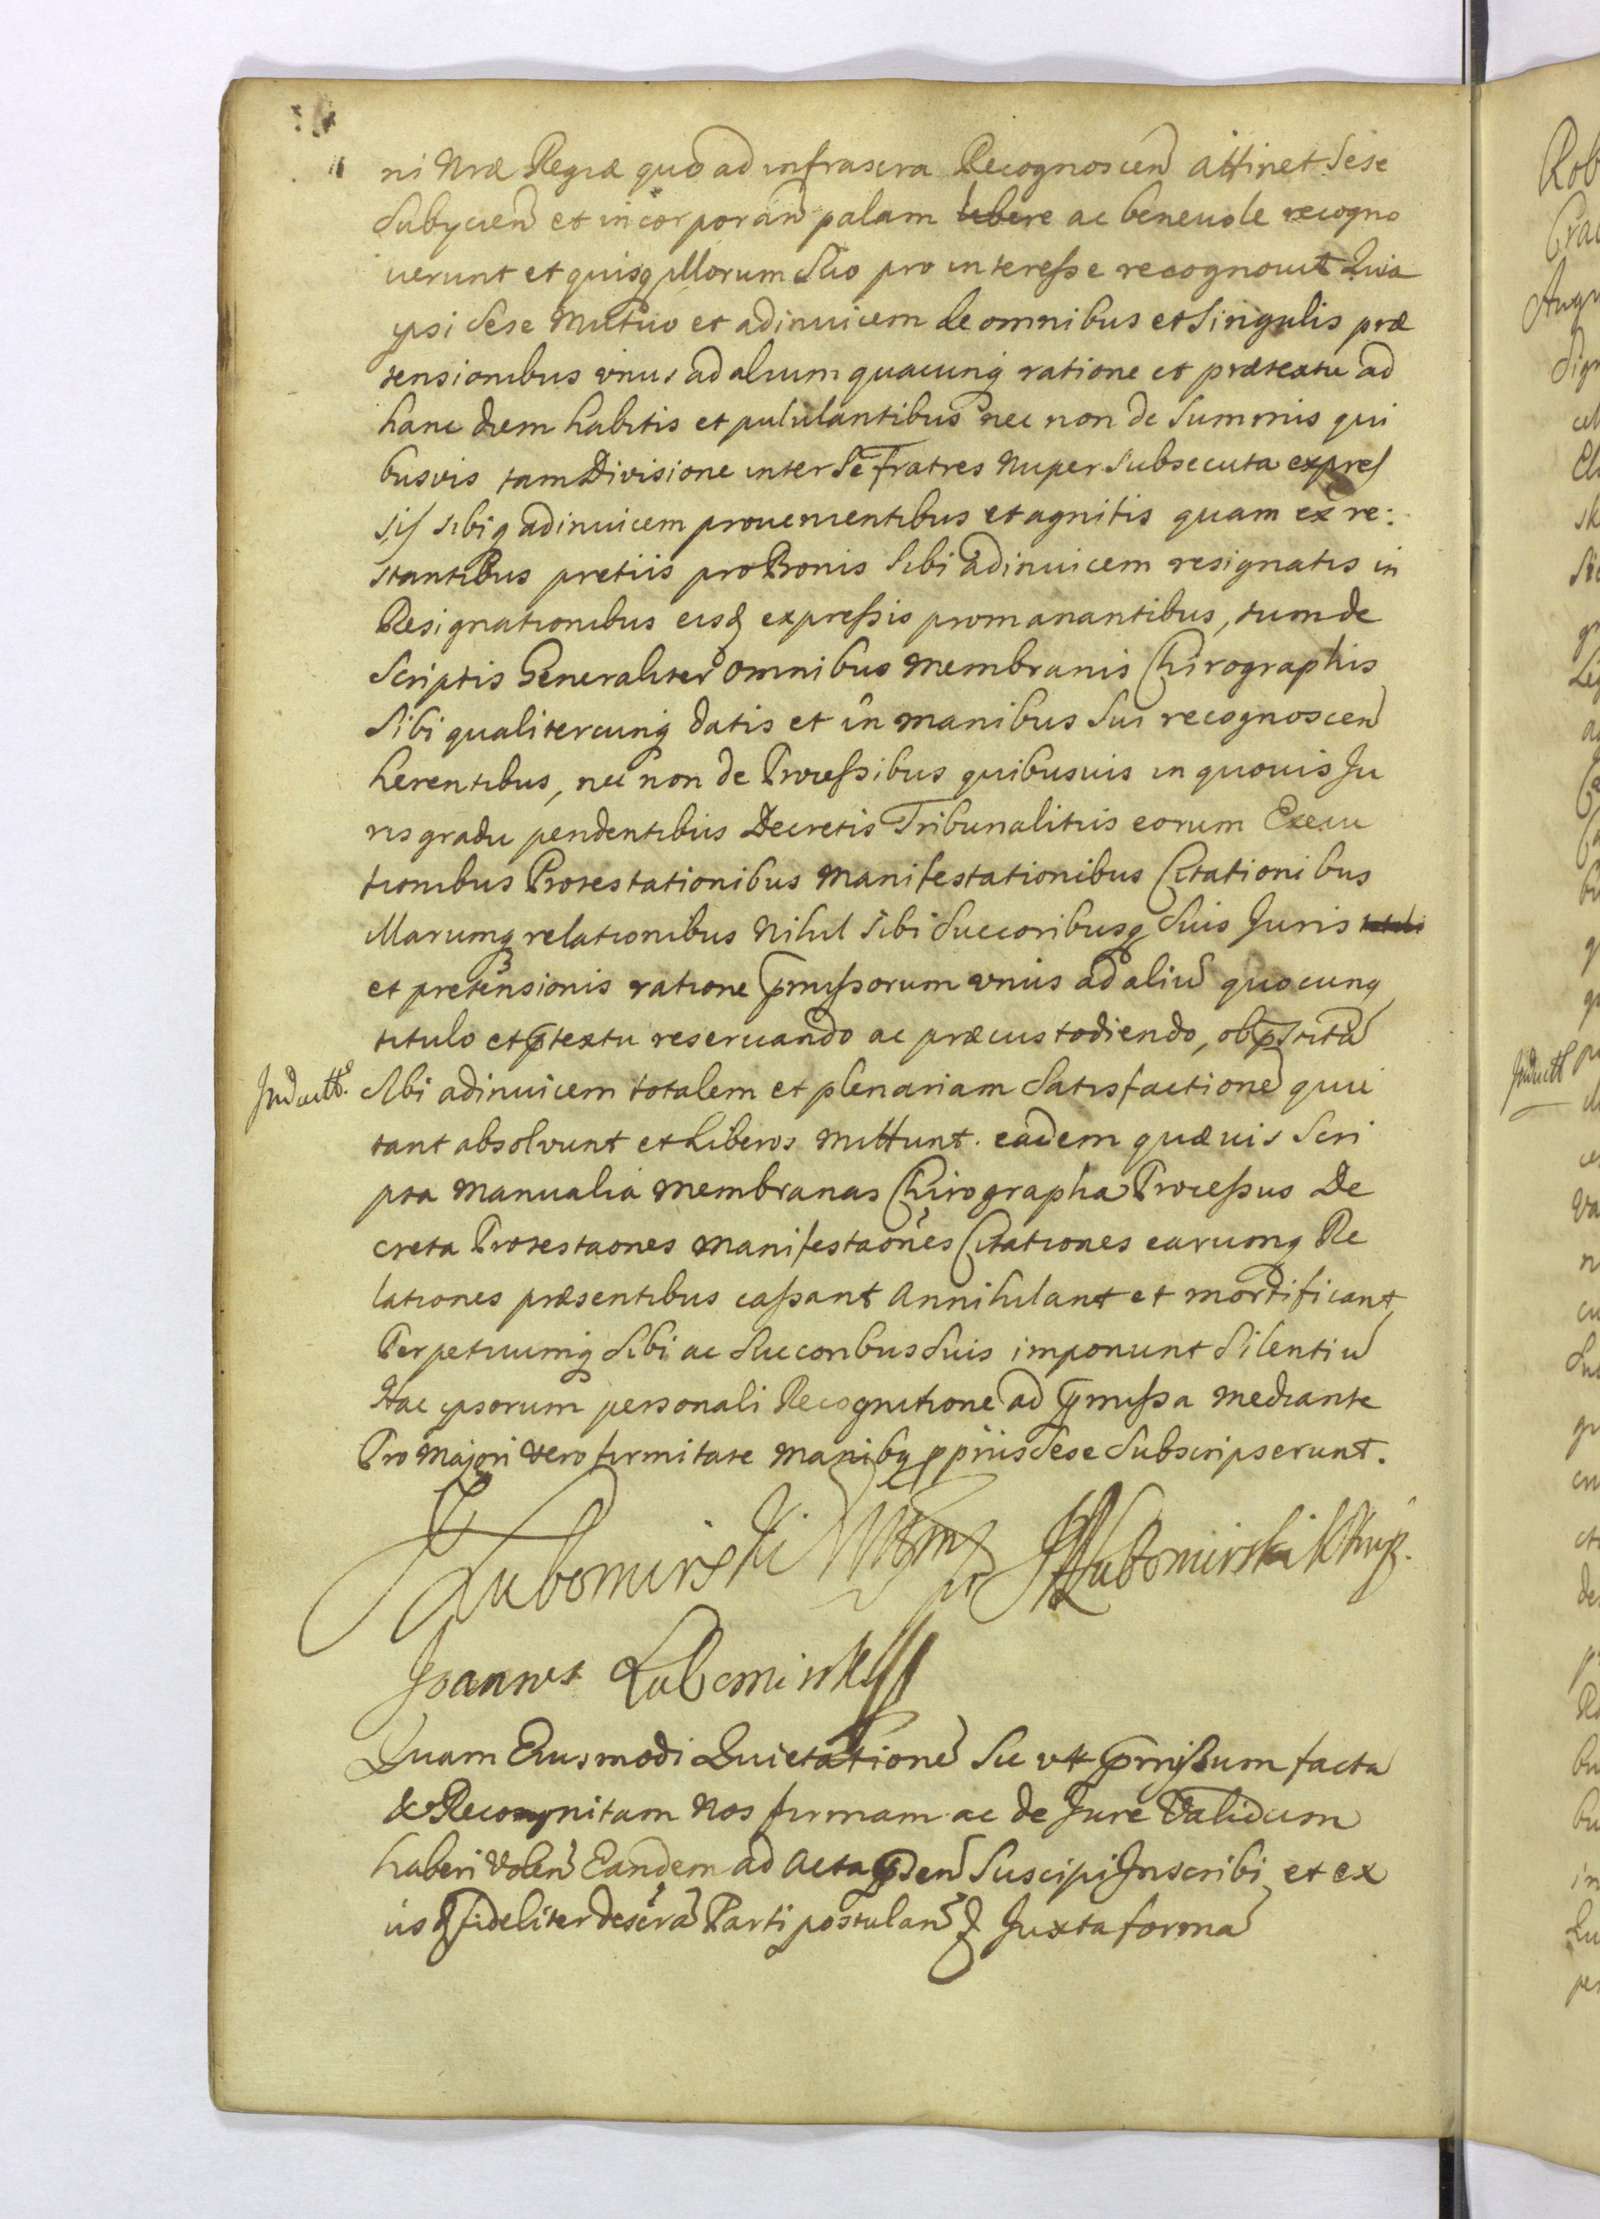 ni Nræ Regiæ quo ad infrascra Recognoscen attinet sese
Subycien et incorporan palam libere ac beneuole recogno
uerunt et quisq illorum Suo pro interesse recognouit Quia
ypsi sese Mutuo et adinuicem de omnibus et Singulis præ
tensionibus vnius ad alium quacunq ratione et prætextu ad
hanc diem habitis et pululantibus nec non de Summis qui
busvis tam Divisione inter Se fratres Nuper Subsecuta expres
sis sibiq adinuicem prouenientibus et agnitis quam ex re:
stantibus pretiis pro Bonis Sibi adinuicem resignatis in
Resignationibus eisd expressis promanantibus, tum de
Scriptis Generaliter omnibus Membranis Chirographis
Sibi qualitercunq datis et in manibus Sui recognoscen
herentibus, nec non de Processibus quibusuis in quouis Ju
ris gradu pendentibus Decretis Tribunalitiis eorum Execu
tionibus Protestationibus Manifestationibus Citationibus
illarumq relationibus Nihil Sibi Succoribusq Suis Juris
et pretensionis ratione pmissorum vnius ad aliu quocunq
titulo et ptextu reseruando ac præcustodiendo, ob pstita
Inductt.
Sibi adinuicem totalem et plenariam Satisfactione qui
tant absolvunt et Liberos Mittunt. eadem quæuis Scri
pta Manualia Membranas Chirographa Processus De
creta Protestaones Manifestaones Citationes earumq Re
lationes præsentibus cassant Annihilant et mortificant
Perpetuumq Sibi ac Succoribus Suis imponunt Silentiu
Hac ypsorum personali Recognitione ad pmissa Mediante
Pro Majori vero firmitate Manibq ppriis Sese Subscripserunt.
Lubomirski
Lubomirski
Joannes Lubomirski
Quam Eiusmodi Quietatione Sic vtt pmissum facta
& Recognitam Nos firmam ac de Jure Validam
haberi Volen Eandem ad Acta psen Suscipi Inscribi et ex
iisd fideliter descra Parti postulan Juxta forma